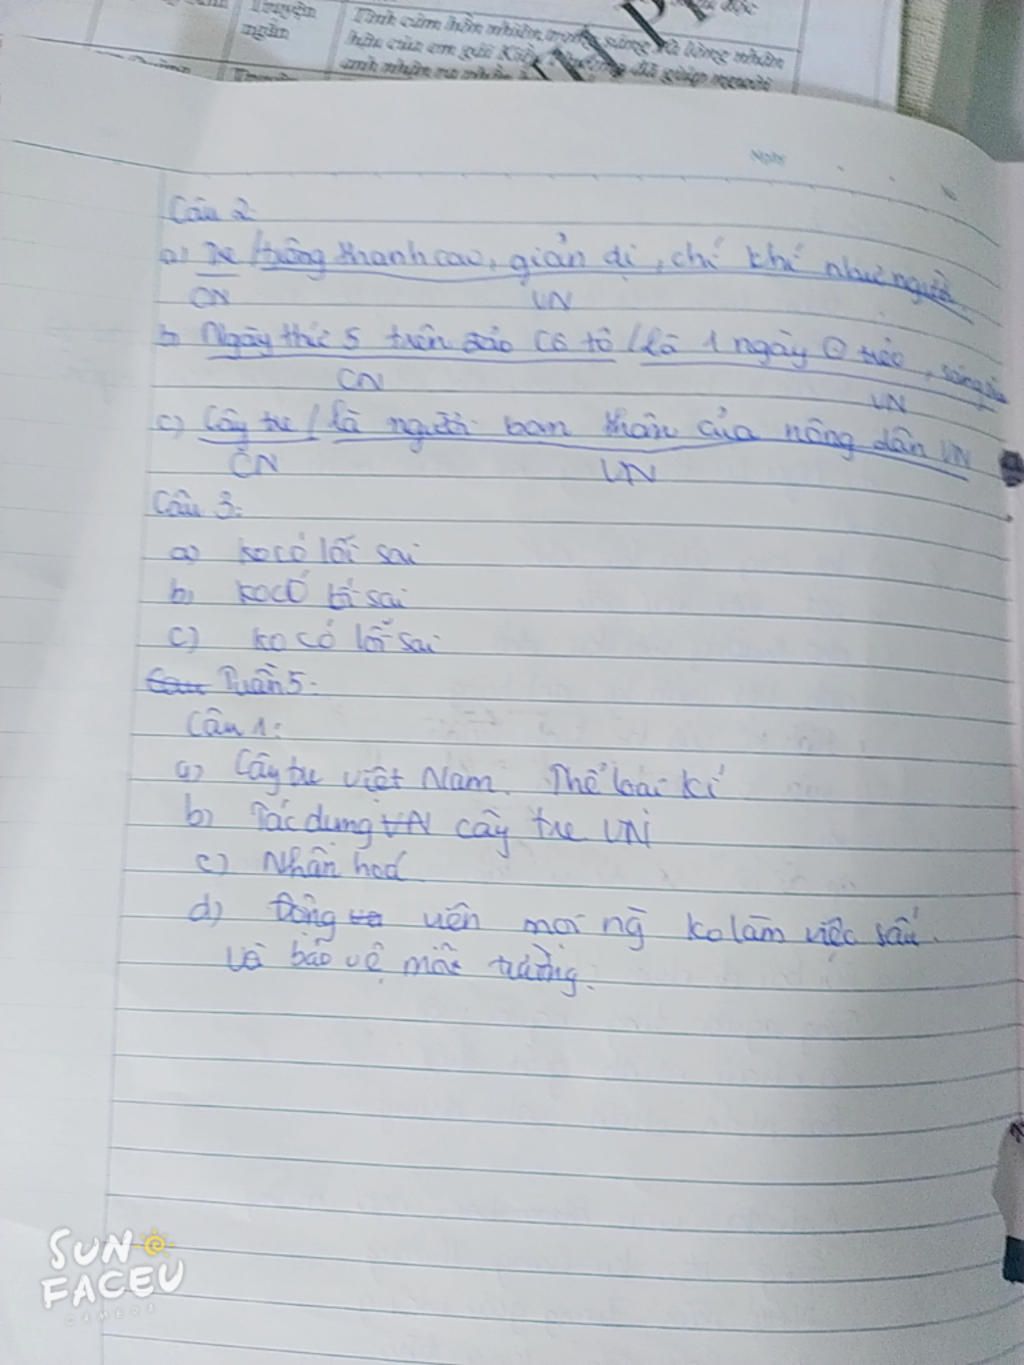 Truyện
ngắn
Tình cảm hồn nhiên trong sáng và lòng nhân
hậu của em gái Kiều Phương đã giúp người
anh nhận ra phần
Ngày
Câu 2:
a) Tre / trông thanh cao, giản dị, chí khí như người
CN VN
b Ngày thứ 5 trên đảo Cô Tô / là 1 ngày 0 trẻo, sáng sủa
CN VN
c) Cây tre / là người bạn thân của nông dân VN
CN VN
Câu 3:
a) ko có lỗi sai
b) ko có lỗi sai
c) ko có lỗi sai
Câu Tuần 5:
Câu 1:
a) Cây tre Việt Nam. Thể loại kí
b) Tác dụng VN cây tre VN
c) Nhân hoá
d) Động viên mọi ng ko làm việc xấu.
và bảo vệ môi trường.
SUN
FACEU
CAMERA